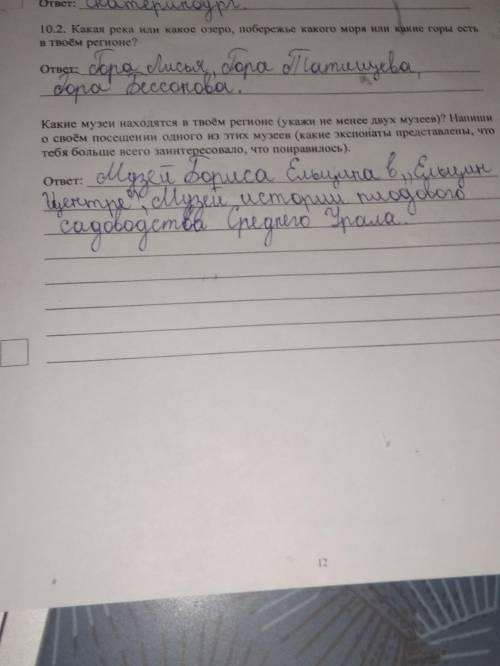 Ответ: Екатеринбург.
10.2. Какая река или какое озеро, побережье какого моря или какие горы есть
в твоём регионе?
Ответ: Гора Лисья, Гора Татищева,
Гора Бессонова.
Какие музеи находятся в твоём регионе (укажи не менее двух музеев)? Напиши
о своём посещении одного из этих музеев (какие экспонаты представлены, что
тебя больше всего заинтересовало, что понравилось).
Ответ: Музей Бориса Ельцина в „Ельцин
Центре", Музей истории плодового
садоводства Среднего Урала.
12